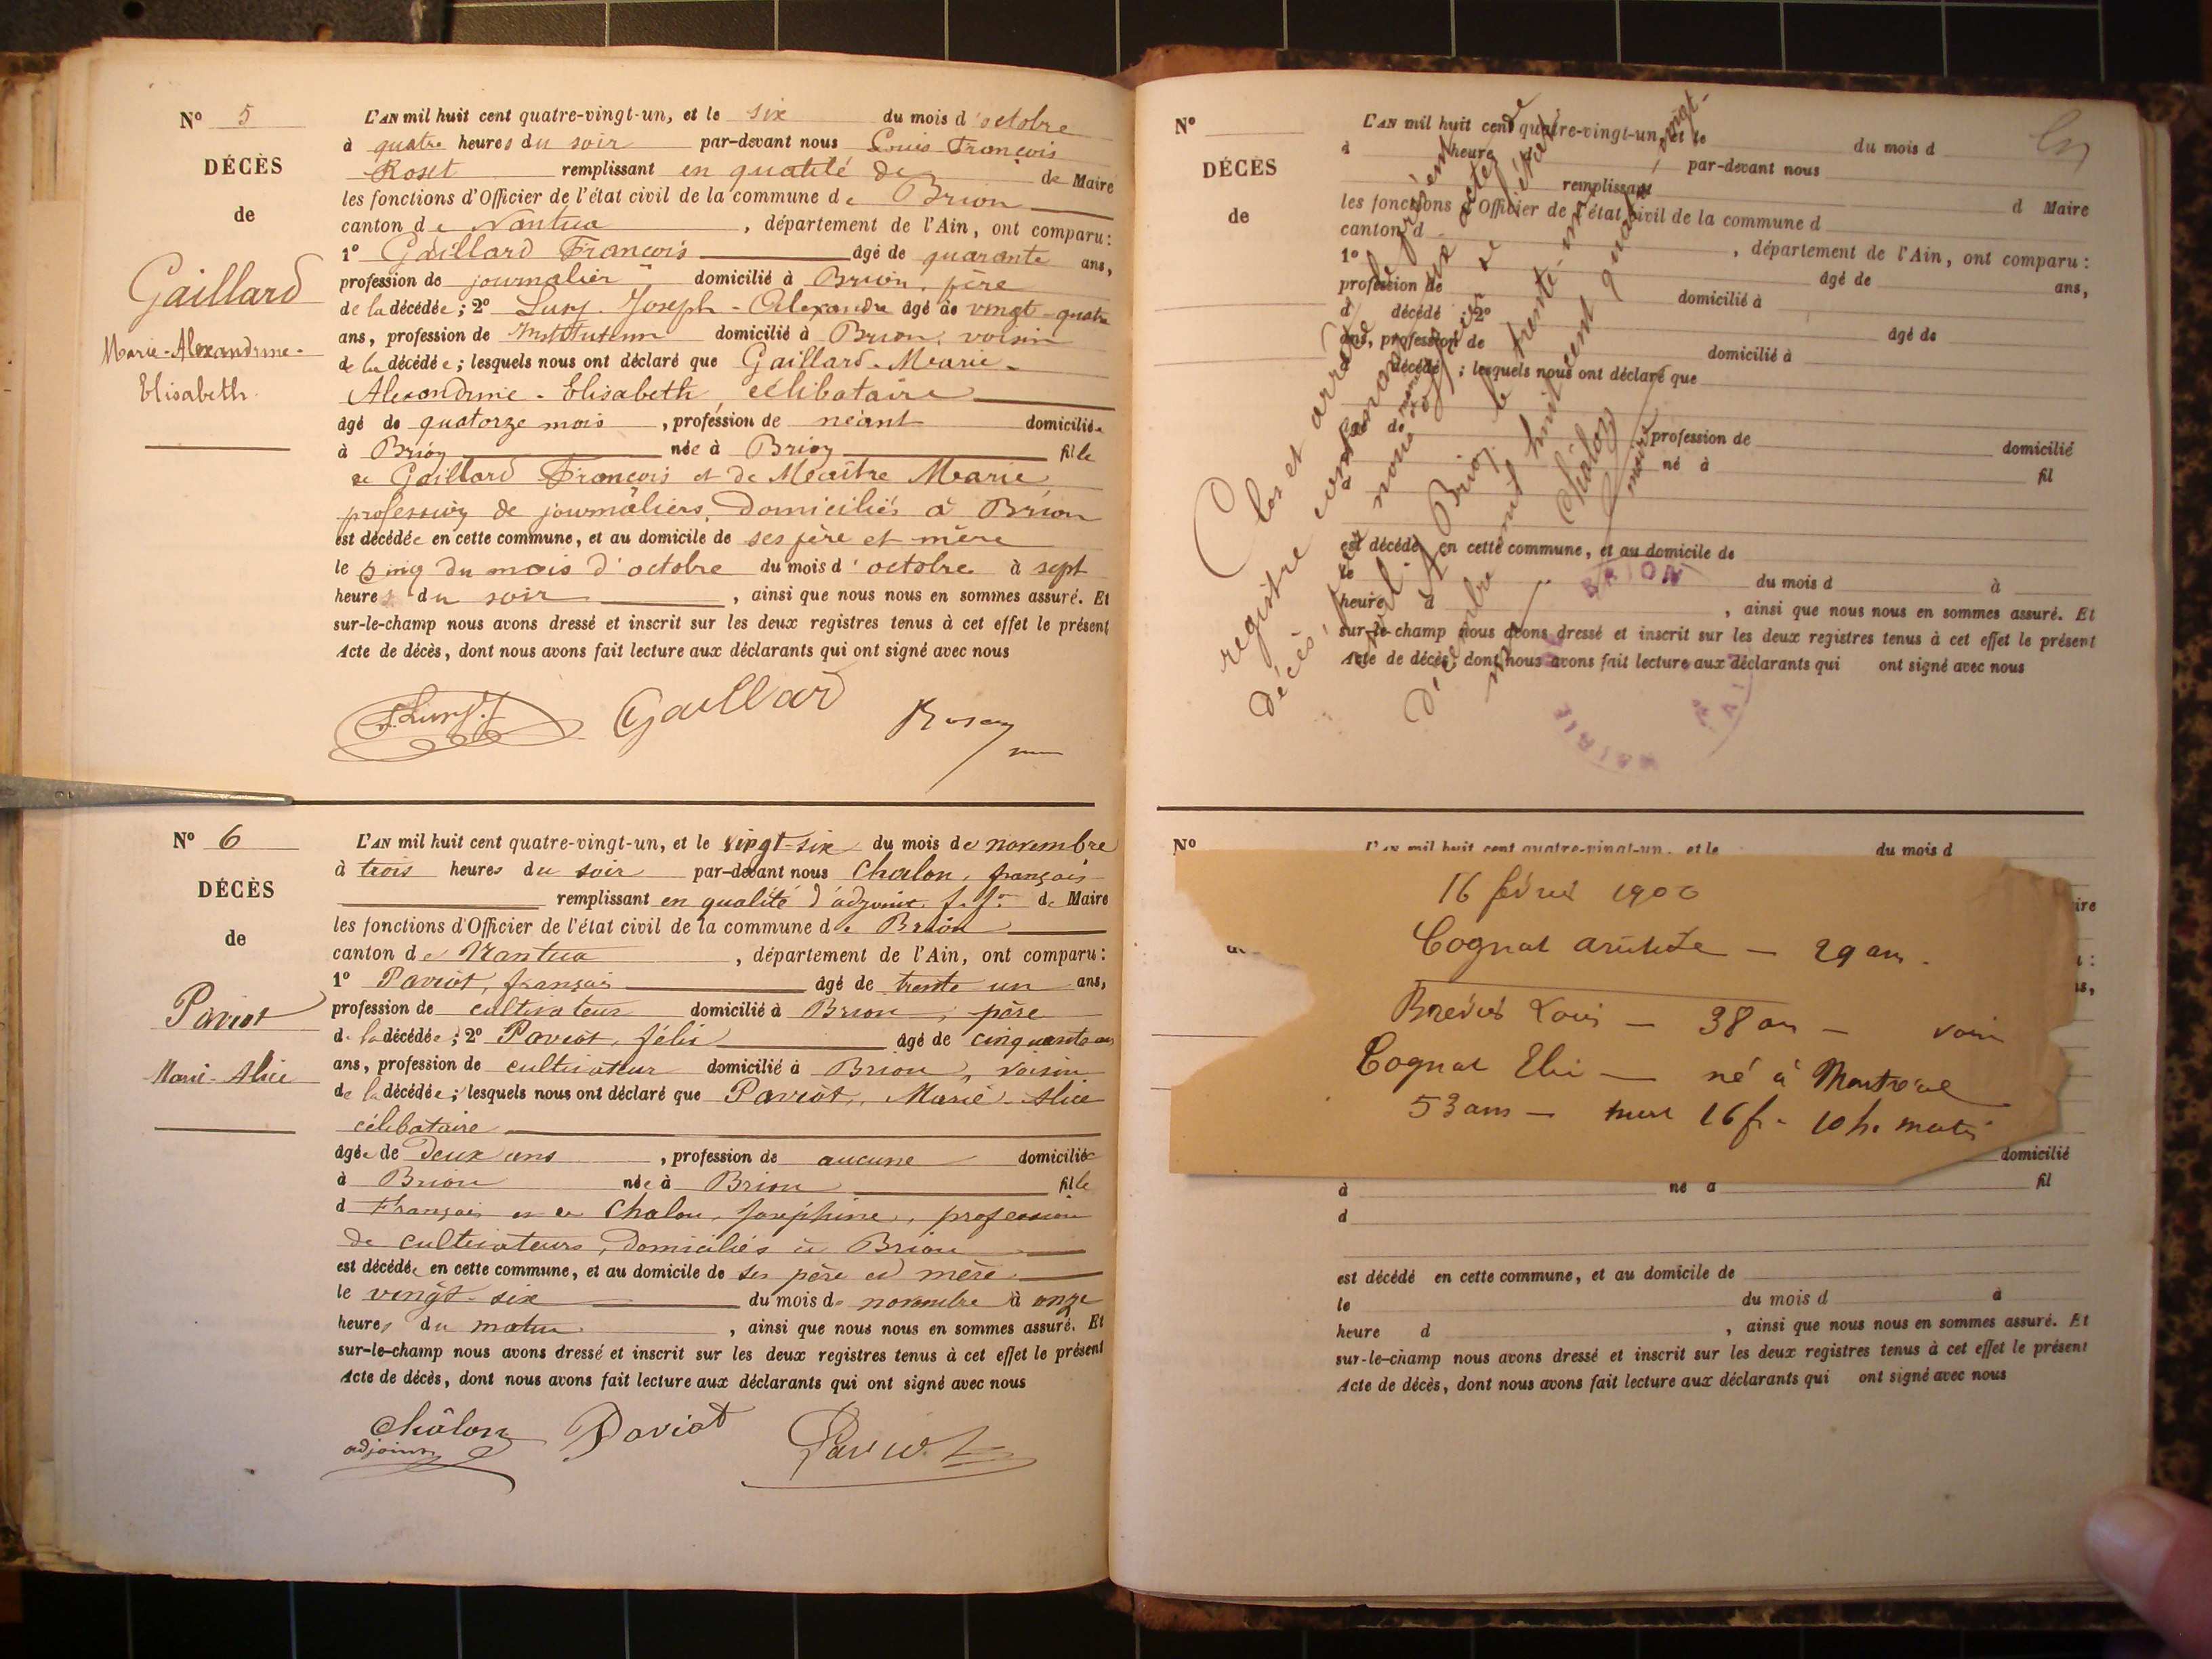 N° 5
DÉCÈS
de
Gaillard
Marie-Alexandrine-
Elisabeth
L'AN mil huit cent quatre-vingt-un, et le six du mois d'octobre
à quatre heures du soir par-devant nous Louis François
Roset remplissant en qualité de de Maire
les fonctions d'Officier de l'état civil de la commune de Brion
canton de Nantua, département de l'Ain, ont comparu:
1° Gaillard François âgé de quarante ans,
profession de journalier domicilié à Brion, père
de la décédée; 2° Joseph-Alexandre âgé de vingt-quatre
ans, profession de Instituteur domicilié à Brion, voisin
de la décédée; lesquels nous ont déclaré que Gaillard-Marie-
Alexandrine-Elisabeth, célibataire
âgé de quatorze mois, profession de néant domiciliée
à Brion née à Brion fille
de Gaillard François et de Mcaître Marie
profession de journaliers, domiciliés à Brion
est décédée en cette commune, et au domicile de ses père et mère
le cinq du mois d'octobre du mois d'octobre à sept
heures du soir, ainsi que nous nous en sommes assuré. Et
sur-le-champ nous avons dressé et inscrit sur les deux registres tenus à cet effet le présent
Acte de décès, dont nous avons fait lecture aux déclarants qui ont signé avec nous
Gaillard
N° 6
DÉCÈS
de
Paviot
Marie-Alice
L'AN mil huit cent quatre-vingt-un, et le vingt-six du mois de novembre
à trois heures du soir par-devant nous Chalon, français
remplissant en qualité d'adjoint f. f. de Maire
les fonctions d'Officier de l'état civil de la commune de Brion
canton de Nantua, département de l'Ain, ont comparu:
1° Paviot, français âgé de trente un ans,
profession de cultivateur domicilié à Brion, père
de la décédée; 2° Paviot, félix âgé de cinquante
ans, profession de cultivateur domicilié à Brion, voisin
de la décédée; lesquels nous ont déclaré que Paviot, Marie-Alice
célibataire
âgée de Deux ans, profession de aucune domiciliée
à Brion née à Brion fille
d François et de Chalon, Joséphine, profession
de cultivateurs, domiciliés à Brion
est décédée en cette commune, et au domicile de ses père et mère
le vingt-six du mois de novembre à onze
heures du matin, ainsi que nous nous en sommes assuré. Et
sur-le-champ nous avons dressé et inscrit sur les deux registres tenus à cet effet le présent
Acte de décès, dont nous avons fait lecture aux déclarants qui ont signé avec nous
Châlon Paviot Paviot
adjoint
N°
DÉCÈS
de
L'AN mil huit cent quatre-vingt-un, et le du mois d
à heure d par-devant nous
remplissant d Maire
les fonctions d'Officier de l'état civil de la commune d
canton d, département de l'Ain, ont comparu:
1° âgé de ans,
profession de domicilié à
d décédé; 2° âgé de
ans, profession de domicilié à
d décédé; lesquels nous ont déclaré que
âgé de profession de domicilié
à né à fil
est décédé en cette commune, et au domicile de
le du mois d à
heure d, ainsi que nous nous en sommes assuré. Et
sur-le-champ nous avons dressé et inscrit sur les deux registres tenus à cet effet le présent
Acte de décès, dont nous avons fait lecture aux déclarants qui ont signé avec nous
Clos et arrêté le présent
registre contenant six actes de
décès, par nous
Brion le trente-un
décembre mil huit cent quatre-vingt-
un
Châlon
maire
MAIRIE
BRION
N°
L'AN mil huit cent quatre-vingt-un, et le du mois d
16 février 1900
Cognat aristide - 29 ans.
Louis - 38 ans - voisin
Cognat Elie - né à Montréal
53 ans - mort 16 f. 10 h. matin
domicilié
à né à fil
d
est décédé en cette commune, et au domicile de
le du mois d à
heure d, ainsi que nous nous en sommes assuré. Et
sur-le-champ nous avons dressé et inscrit sur les deux registres tenus à cet effet le présent
Acte de décès, dont nous avons fait lecture aux déclarants qui ont signé avec nous